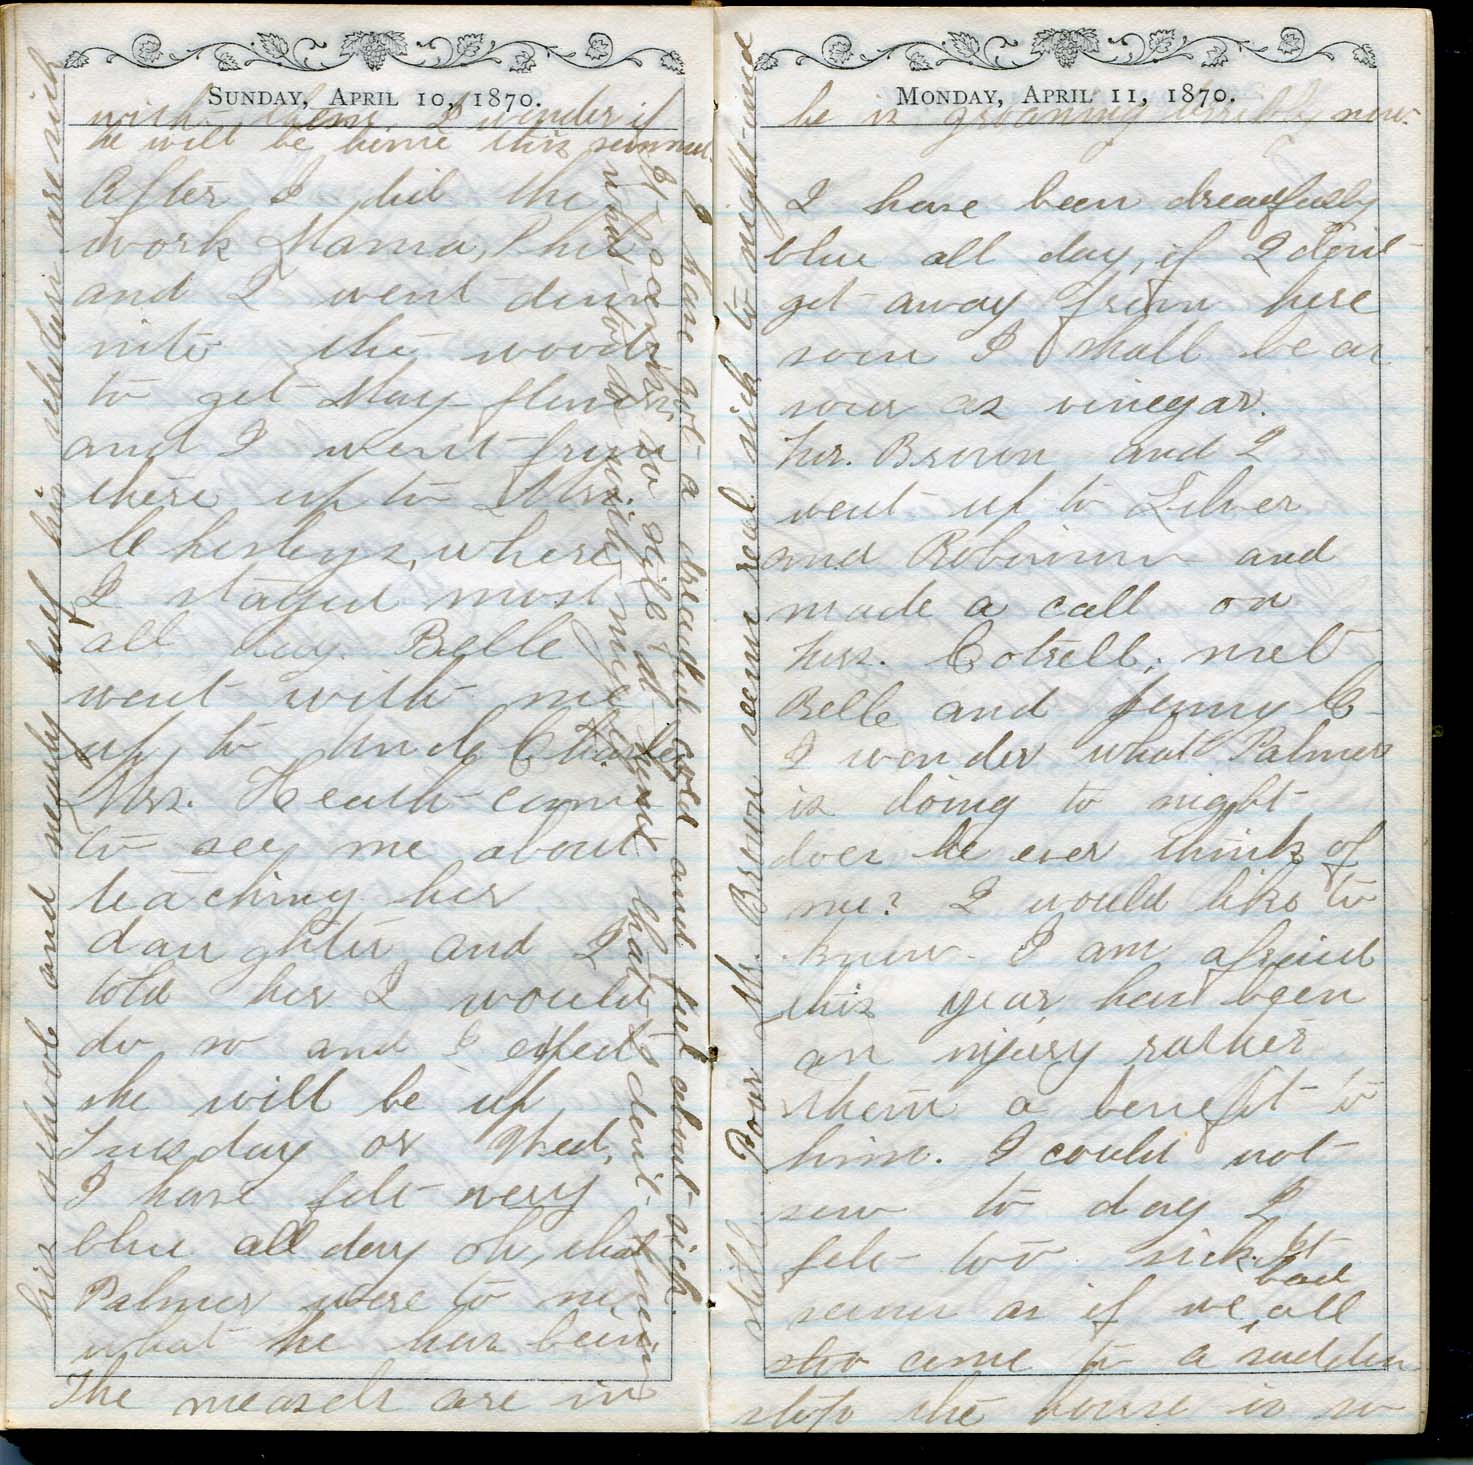 SUNDAY, APRIL 10, 1870.
with them. I wonder if
he will be home this summer
After I did the
work Mama, Phil
and I went down
into the woods
to get May-flowers
and I went from
there up to Mrs.
Chesleys, where
I stayed most
all day. Belle
went with me
up to Uncle Charles
Mrs. Heath came
to see me about
teaching her
daughter and I
told her I would
do so and I expect
she will be up
Tuesday or Wed,
I have felt very
blue all day oh, that
Palmer were to me
what he has been
The measels are in
his school and nearly half his scholars are sick
It
so still
what
I dont
I have got a dreadful cold and feel about sick.
MONDAY, APRIL 11, 1870.
he is groaning terribly now.
I have been dreadfully
blue all day, if I dont
get away from here
soon I shall be as
sour as vinegar.
Mrs. Brown and I
went up to Silver
and Robinson and
made a call on
Mrs. Cotrell; met
Belle and Jenny C
I wonder what Palmer
is doing to night
does he ever think of
me? I would like to
know. I am afraid
this year has been
an injury rather
than a benefit to
him. I could not
sew to day I
felt too sick. It
seems as if we had all
come to a sudden
stop the house is so
still Poor Mr. Brown seems real sick to night and